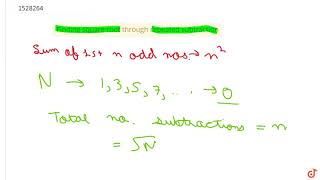 1528264
Finding square root through repeated subtraction
Sum of 1st n odd nos. → n²
N → 1, 3, 5, 7, ... → 0
Total no. subtractions = n
= √N